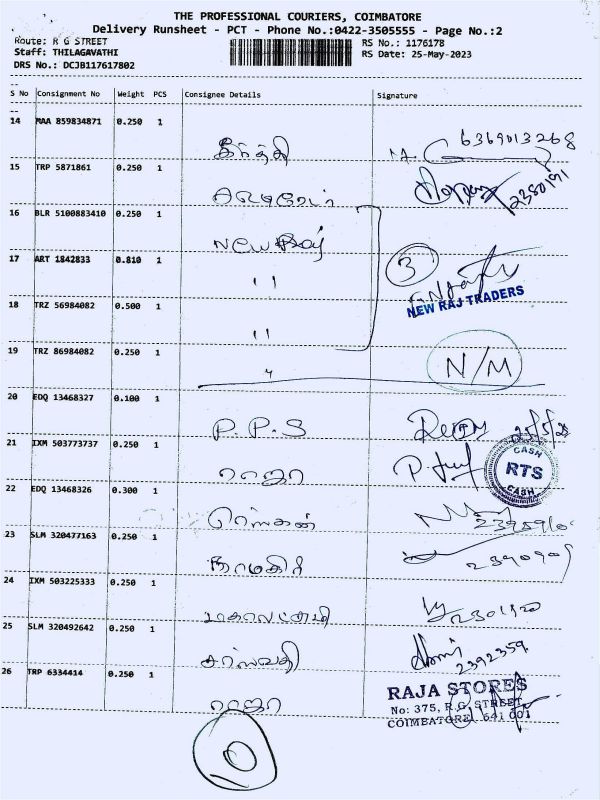 THE PROFESSIONAL COURIERS, COIMBATORE
Delivery Runsheet - PCT - Phone No.:0422-3505555 - Page No.:2
Route: R G STREET
Staff: THILAGAVATHI
DRS No.: DCJB117617802
RS No.: 1176178
RS Date: 25-May-2023
S No Consignment No Weight PCS Consignee Details Signature
14 MAA 859834871 0.250 1
கீர்த்தி 6369013268
15 TRP 5871861 0.250 1
2380191
16 BLR 5100883410 0.250 1
New Raj
17 ART 1842833 0.810 1
" 3
NEW RAJ TRADERS
18 TRZ 56984082 0.500 1
"
19 TRZ 86984082 0.250 1
" N/M
20 EDQ 13468327 0.100 1
P.P.S
21 IXM 503773737 0.250 1
ராஜா
CASH
RTS
CASH
22 EDQ 13468326 0.300 1
23 SLM 320477163 0.250 1
நாமகிரி
24 IXM 503225333 0.250 1
மகாலட்சுமி
25 SLM 320492642 0.250 1
சரஸ்வதி 2392359
26 TRP 6334414 0.250 1
ராஜா
RAJA STORES
No: 375, R.G. STREET,
COIMBATORE, 641 001
10